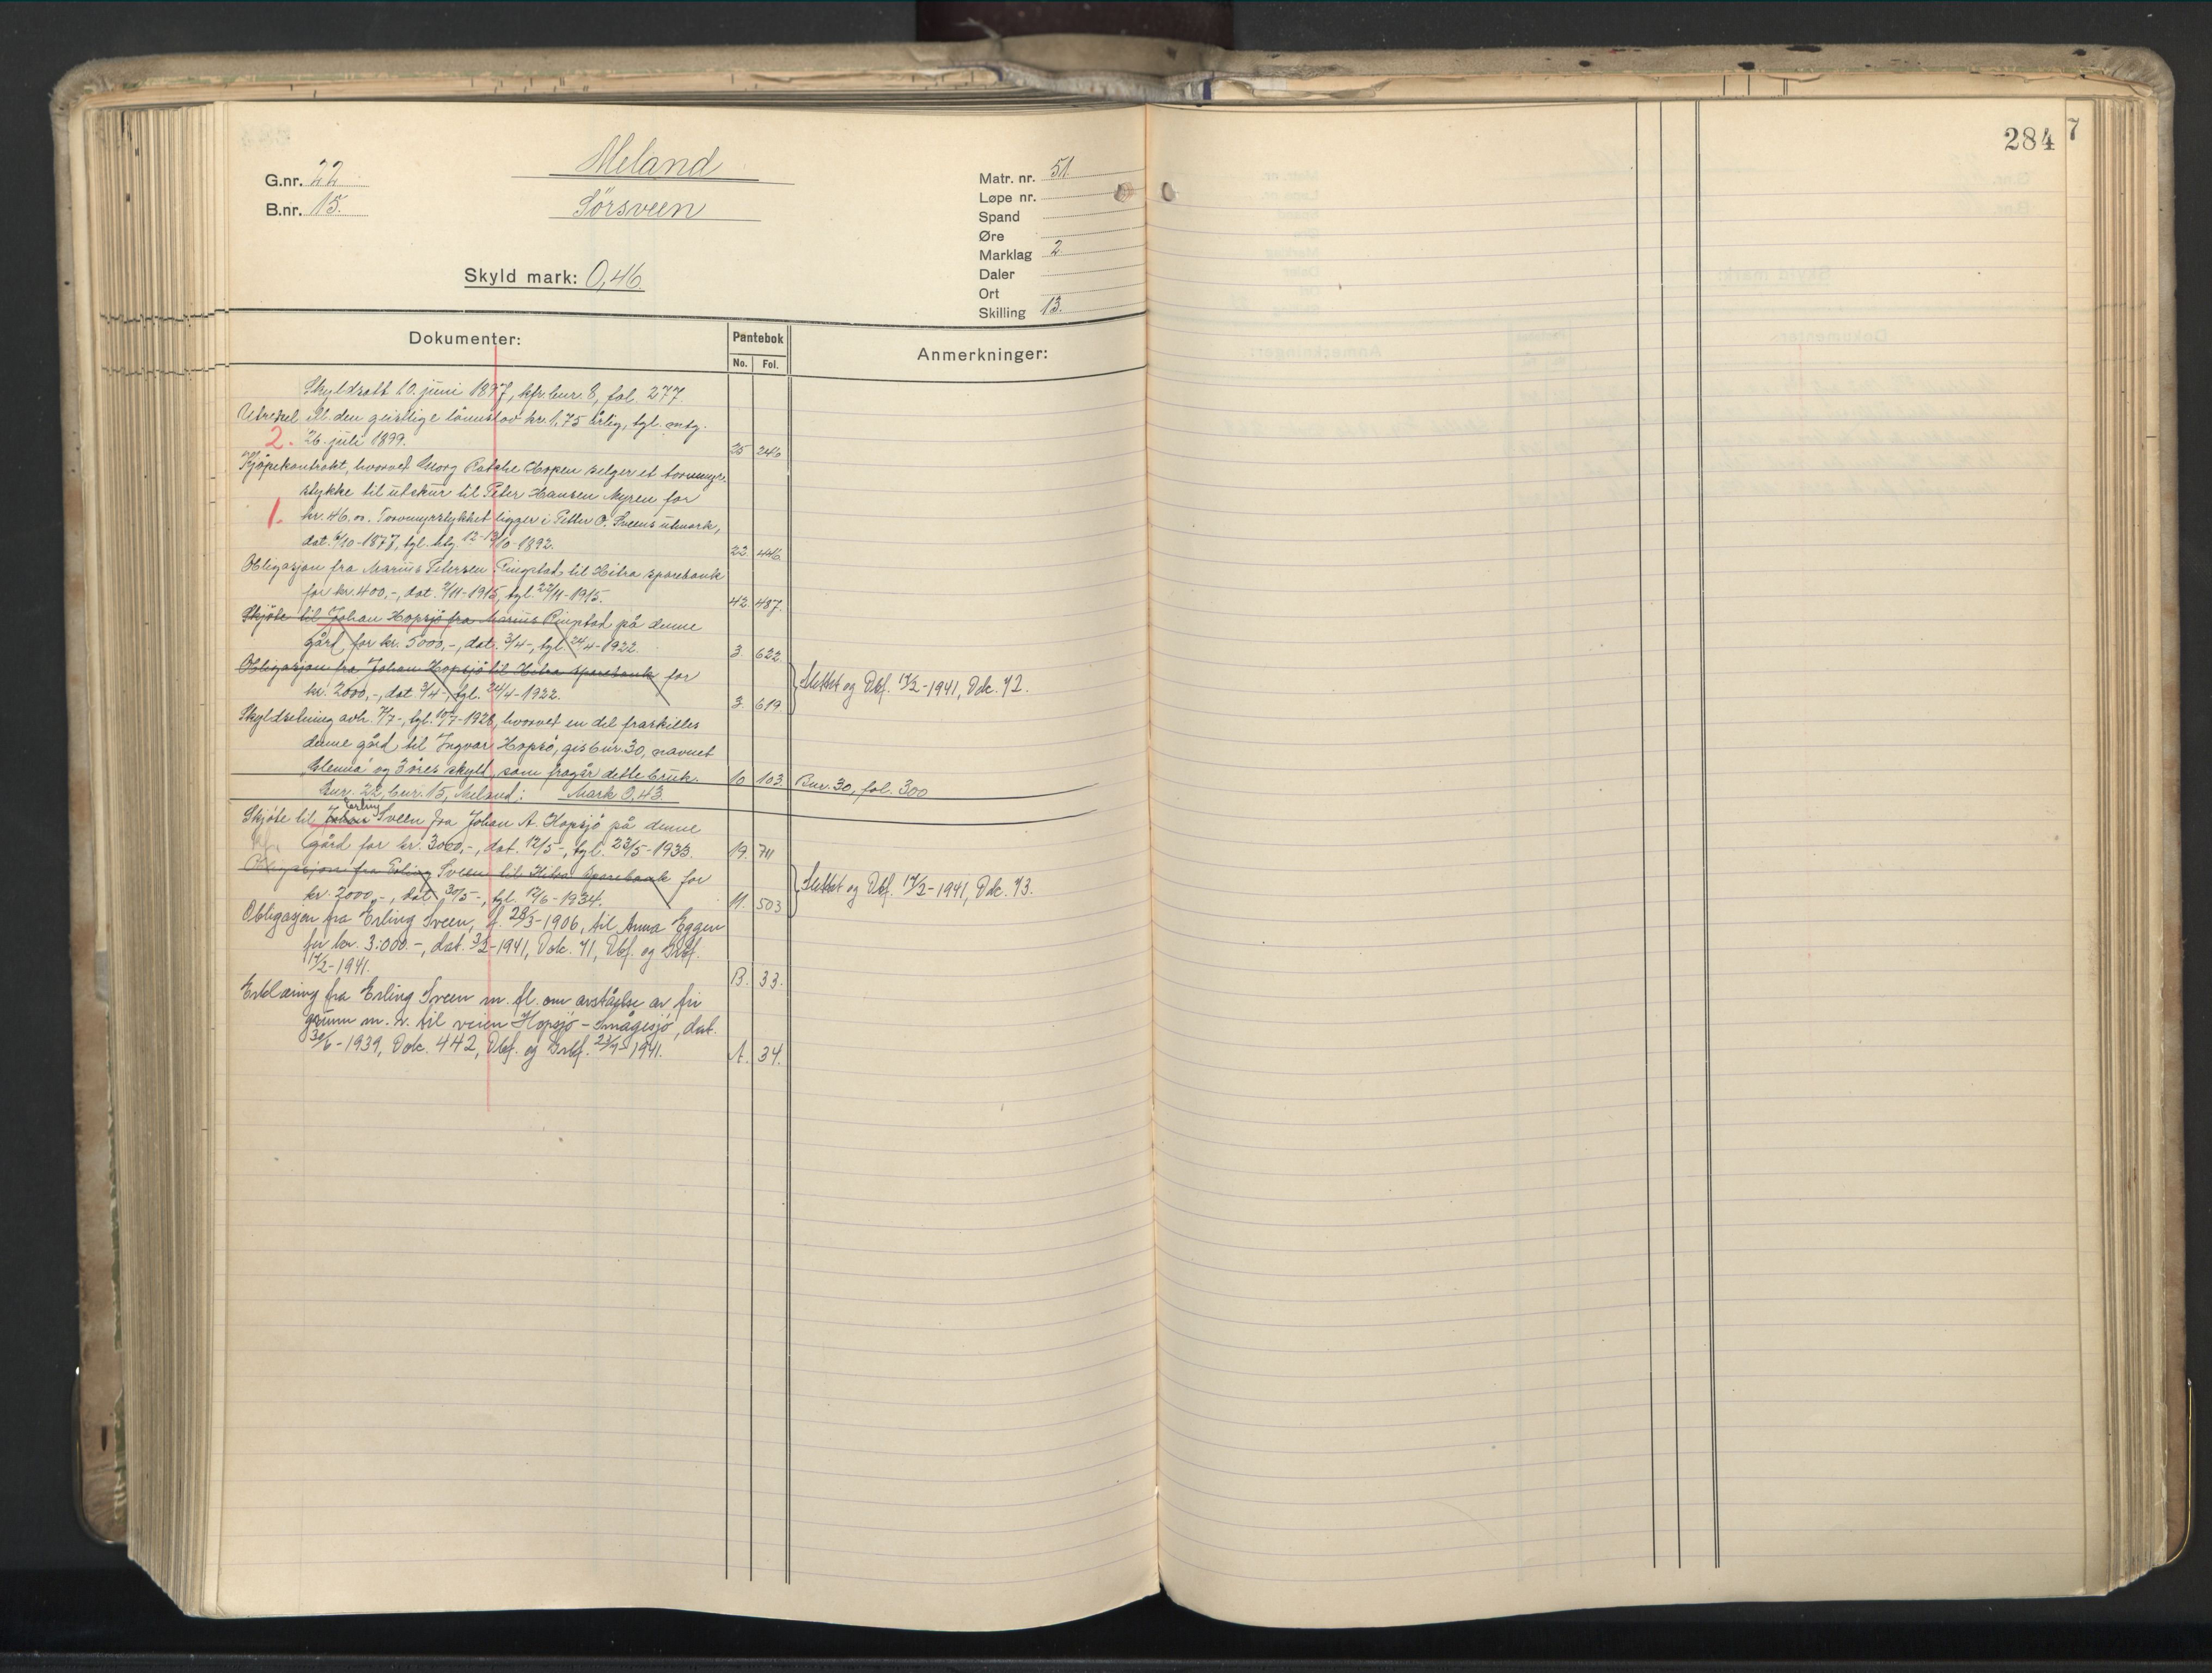 284
7
Meland
Sørsveen
G.nr. 22
B.nr. 15.
Matr. nr. 51
Løpe nr.
Spand
Øre
Marklag 2
Daler
Ort
Skilling 13.
Skyld mark: 0,46
Dokumenter:
Pantebok
No. Fol.
Anmerkninger:
Skyldsatt 10. juni 1897, kfr. bnr. 8, fol. 277.
til den geistlige kr. 1,75 årlig, tgl. mtg.
2. 26. juli 1899. 25 246
Kjøpekontrakt, hvorved Georg Hopen selger et torvmyr-
stykke til utskur til Peter Hansen Myren for
1. kr. 46.00. Torvmyrstykket ligger i Petter O. Sveens utmark,
dat. 6/10-1877, tgl. 12-13/10-1892. 22. 446
Obligasjon fra Marius Petersen til Hitra sparebank
for kr. 400,-, dat. 9/11-1915, tgl. 22/11-1915. 42. 487.
Skjøte til Johan Hopsjø fra Marius på denne
gård for kr. 5000,-, dat. 3/4-, tgl. 24/4-1922. 3 622
Obligasjon fra Johan Hopsjø til Hitra sparebank for
kr. 2000,-, dat. 3/4-, tgl. 24/4-1922. 3. 619.
Slettet og Dbf. 17/2-1941, Dok. 72.
Skyldseting avh. 7/7-, tgl. 10/7-1928, hvorved en del fraskilles
denne gård til Ingvar Hopsø, gis bnr. 30, navnet
og 3 øres skyld, som fragår dette bruk. 10 103 Bnr. 30, fol. 300
Gnr. 22, bnr. 15, Meland: Mark 0,43
Erling
Skjøte til Johan Sveen fra Johan A. Hopsjø på denne
gård for kr. 3000,-, dat. 12/5-, tgl. 23/5-1933. 19. 711
Obligasjon fra Erling Sveen til Hitra sparebank for
kr. 2000,-, dat. 30/5-, tgl. 12/6-1934. 11. 503
Slettet og Dbf. 17/2-1941, Dok. 73.
Obligasjon fra Erling Sveen, f. 28/3-1906, til Anna Eggen
for kr. 3.000.-, dat. 3/2-1941, Dok. 71, Dbf. og Grbf.
17/2-1941. B. 33.
Erklæring fra Erling Sveen m. fl. om avståelse av fri
grunn m. v. til veien Hopsjø - Smågisjø, dat.
30/6-1939, Dok. 442, Dbf. og Grbf. 23/9-1941. A. 34.